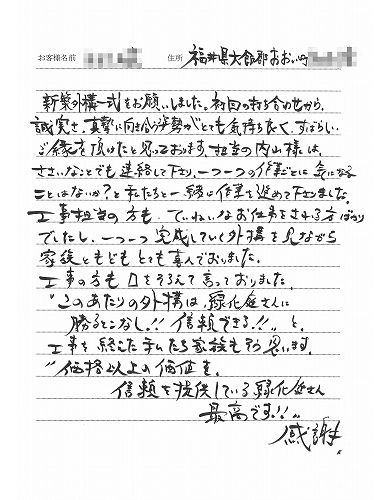 お客様名前 住所 福井県大飯郡おおい町
新築外構一式をお願いしました。初回の打ち合わせから、
誠実さ、真摯に向き合う姿勢がとても気持ち良く、すばらしい
ご縁を頂けたと思っております。担当の内山様は、
ささいなことでも連絡して下さり、一つ一つの作業ごとに気になる
ことはないか?と私たちと一緒に作業を進めて下さいました。
工事担当の方も、ていねいなお仕事をされる方ばかり
でしたし、一つ一つ完成していく外構を見ながら
家族ともどもとても喜んでおりました。
工事の方も口をそろえて言っておりました。
"このあたりの外構は、緑化庭さんに
勝るとこなし!!信頼できる!!"と、
工事を終えた私たち家族もそう思います。
"価格以上の価値を、
信頼を提供している緑化庭さん
最高です!!"
感謝。